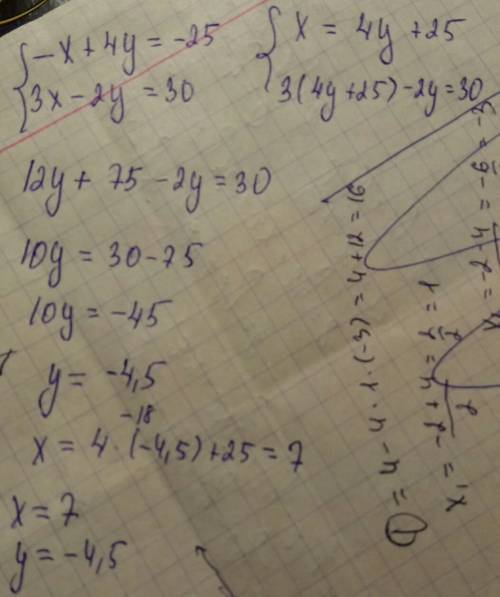 {-x + 4y = -25
{3x - 2y = 30
{x = 4y + 25
{3(4y+25) - 2y = 30
12y + 75 - 2y = 30
10y = 30 - 75
10y = -45
y = -4,5
-18
x = 4 · (-4,5) + 25 = 7
x = 7
y = -4,5
D = 4 - 4 · 1 · (-3) = 4 + 12 = 16